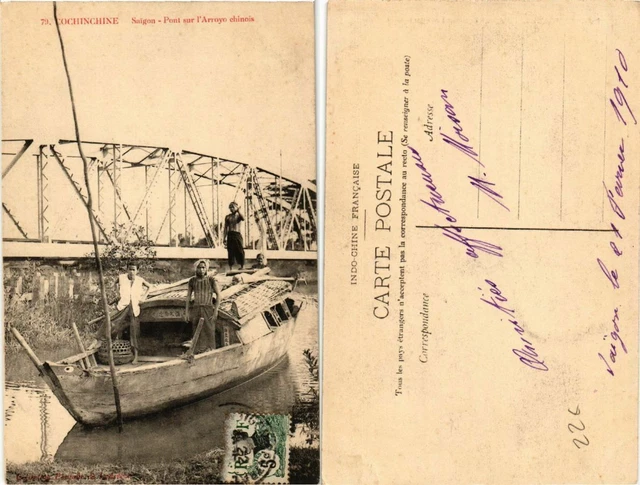 79. COCHINCHINE Saïgon - Pont sur l'Arroyo chinois
INDO-CHINE FRANÇAISE
CARTE POSTALE
Tous les pays étrangers n'acceptent pas la correspondance au recto (Se renseigner à la poste)
Correspondance
Adresse
Amitiés affectueuses
Saïgon le 28 1910
226